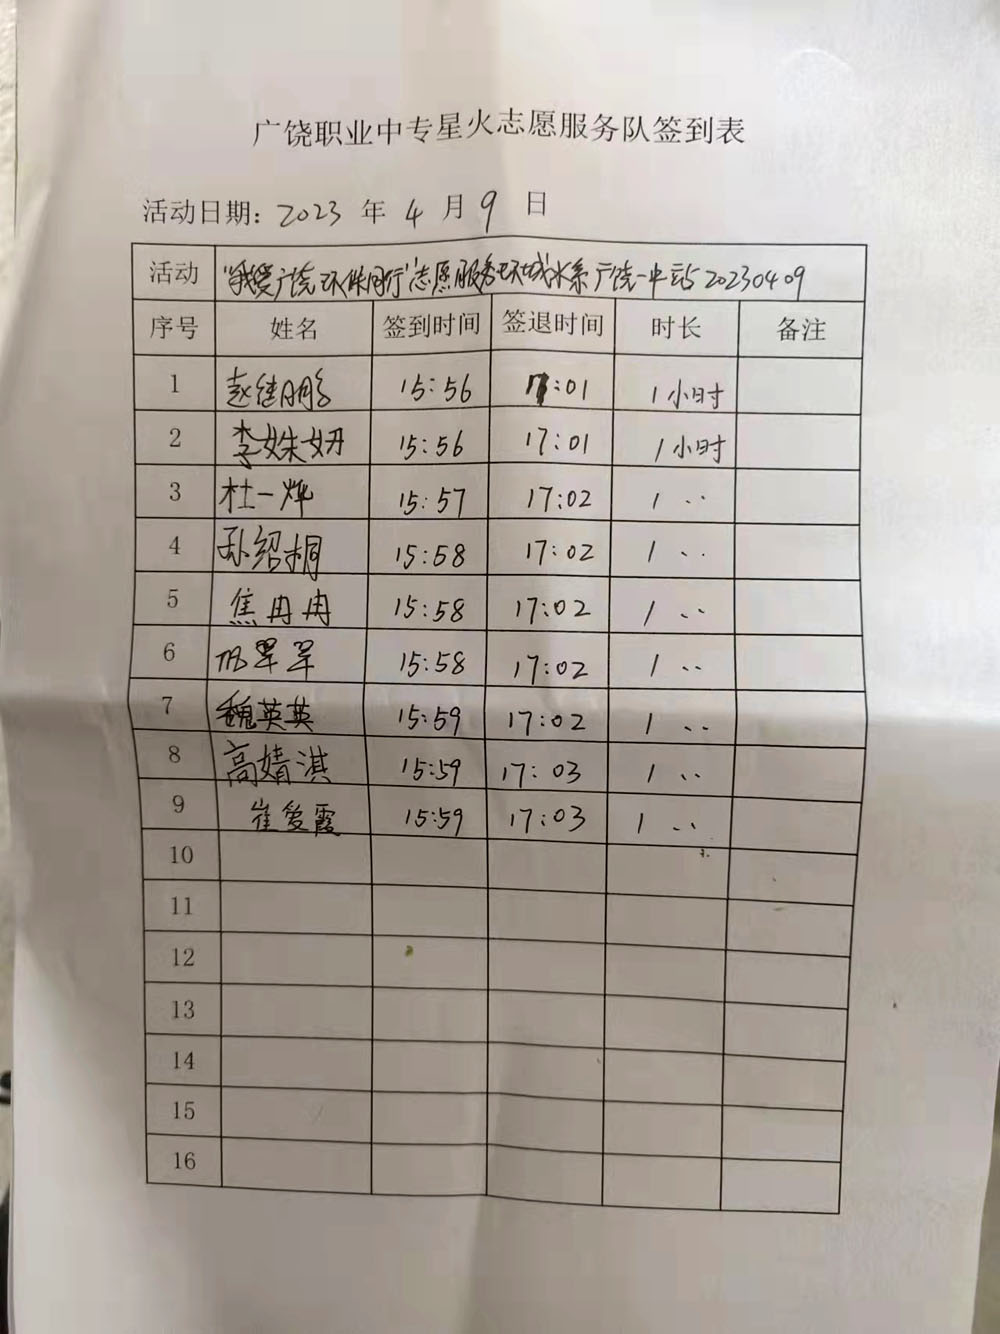 广饶职业中专星火志愿服务队签到表
活动日期: 2023 年 4 月 9 日
活动 "我爱广饶 环保同行"志愿服务环城水系广饶一中站20230409
序号 姓名 签到时间 签退时间 时长 备注
1 赵继鹏 15:56 17:01 1小时
2 李姝妍 15:56 17:01 1小时
3 杜一烨 15:57 17:02 1 ..
4 孙绍桐 15:58 17:02 1 ..
5 焦冉冉 15:58 17:02 1 ..
6 15:58 17:02 1 ..
7 魏英英 15:59 17:02 1 ..
8 高婧淇 15:59 17:03 1 ..
9 崔爱霞 15:59 17:03 1 ..
10
11
12
13
14
15
16